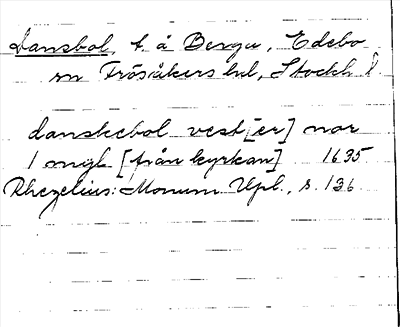 Dansbol, t. å Berga, Edebo
sn Frösåkers hd, Stockh l
danskebol vest[er] nor
1 migl [från kyrkan] 1635
Rhezelius: Monum Upl., s. 136